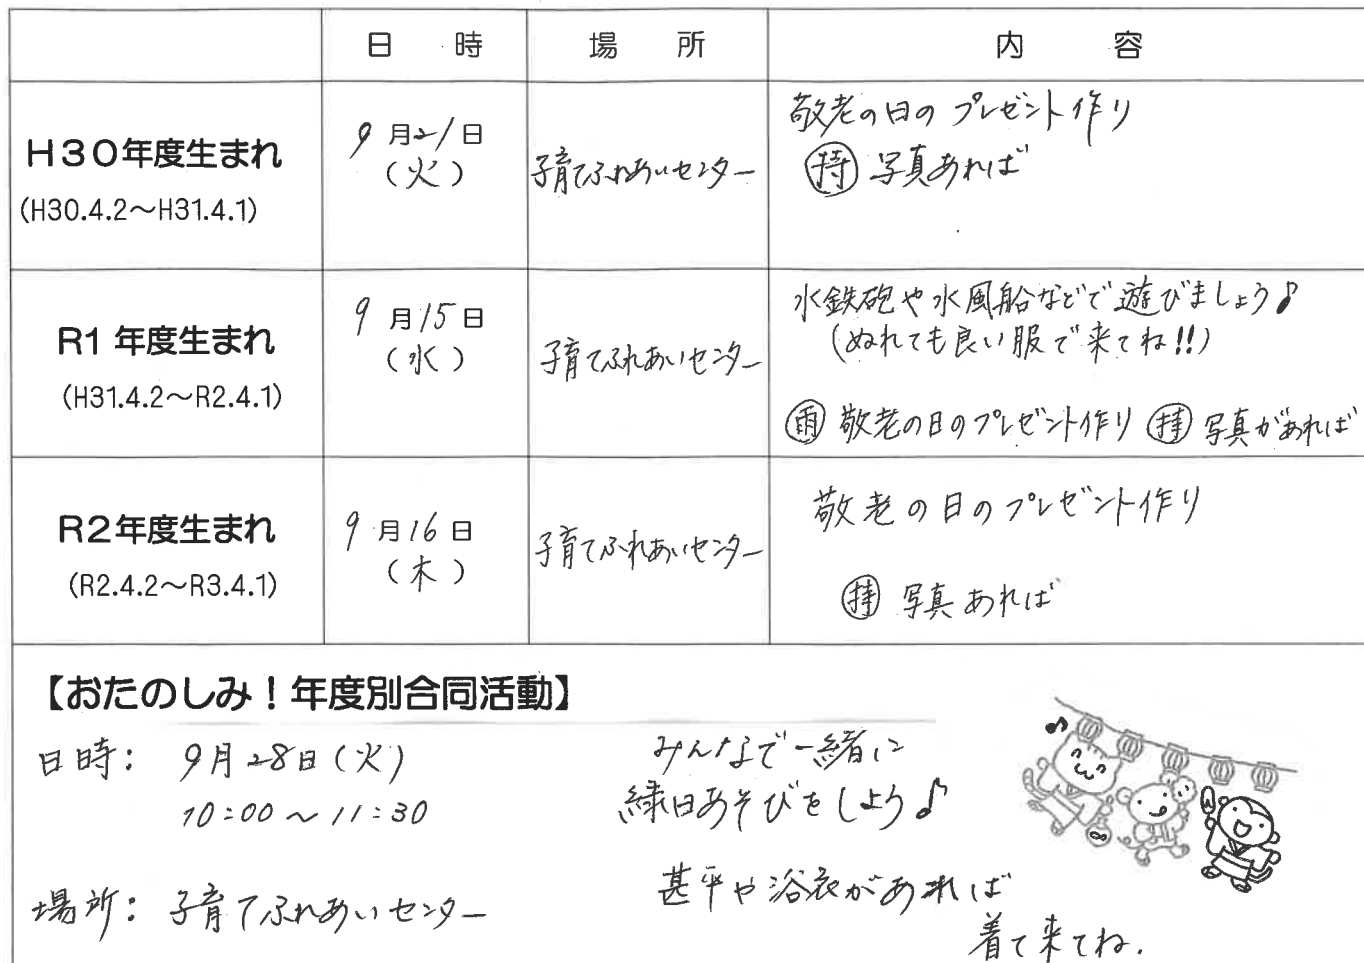 日 時 場 所 内 容
H30年度生まれ
(H30.4.2～H31.4.1)
9月21日
(火)
子育てふれあいセンター
敬老の日のプレゼント作り
㊕持 写真あれば
R1年度生まれ
(H31.4.2～R2.4.1)
9月15日
(水)
子育てふれあいセンター
水鉄砲や水風船などで遊びましょう♪
(ぬれても良い服で来てね!!)
雨 敬老の日のプレゼント作り 持 写真があれば
R2年度生まれ
(R2.4.2～R3.4.1)
9月16日
(木)
子育てふれあいセンター
敬老の日のプレゼント作り
持 写真あれば
【おたのしみ！年度別合同活動】
日時： 9月28日(火)
10:00～11:30
場所： 子育てふれあいセンター
みんなで一緒に
縁日あそびをしよう♪
甚平や浴衣があれば
着て来てね.